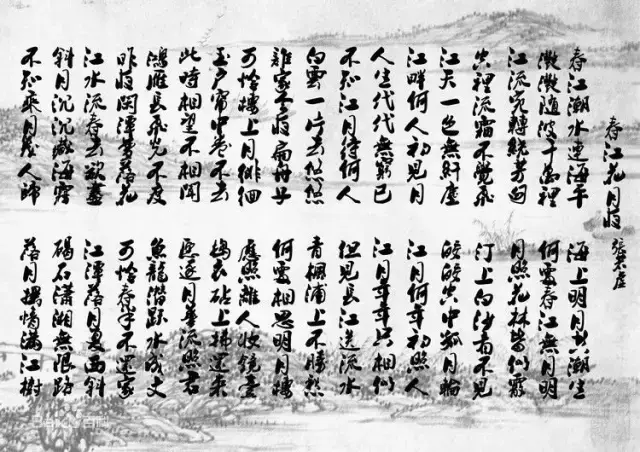 春江花月夜 張若虛
春江潮水連海平 海上明月共潮生
灩灩隨波千萬裡 何處春江無月明
江流宛轉繞芳甸 月照花林皆似霰
空裡流霜不覺飛 汀上白沙看不見
江天一色無纖塵 皎皎空中孤月輪
江畔何人初見月 江月何年初照人
人生代代無窮已 江月年年只相似
不知江月待何人 但見長江送流水
白雲一片去悠悠 青楓浦上不勝愁
誰家今夜扁舟子 何處相思明月樓
可憐樓上月徘徊 應照離人妝鏡臺
玉戶簾中卷不去 搗衣砧上拂還來
此時相望不相聞 願逐月華流照君
鴻雁長飛光不度 魚龍潛躍水成文
昨夜閑潭夢落花 可憐春半不還家
江水流春去欲盡 江潭落月復西斜
斜月沉沉藏海霧 碣石瀟湘無限路
不知乘月幾人歸 落月搖情滿江樹
Baidu百科